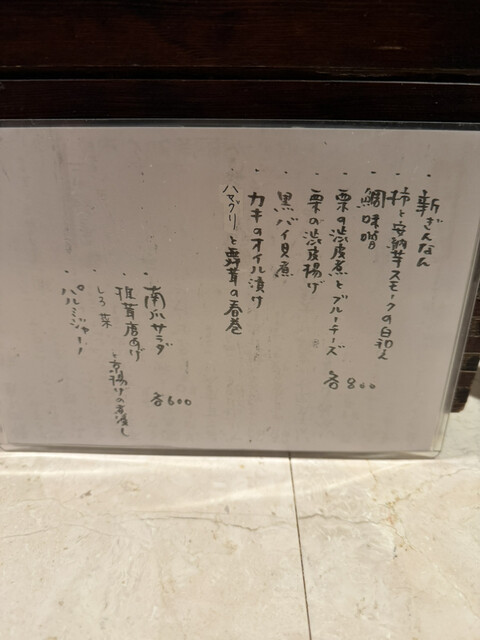 ・新ぎんなん
・柿と安納芋スモークの白和え
・鯛味噌
・栗の渋皮煮とブルーチーズ
・栗の渋皮揚げ
・黒バイ貝煮
・カキのオイル漬け
・ハマグリと舞茸の春巻
各800
・南瓜サラダ
・椎茸唐あげ
・しろ菜と京揚げの煮浸し
・パルミジャーノ
各600